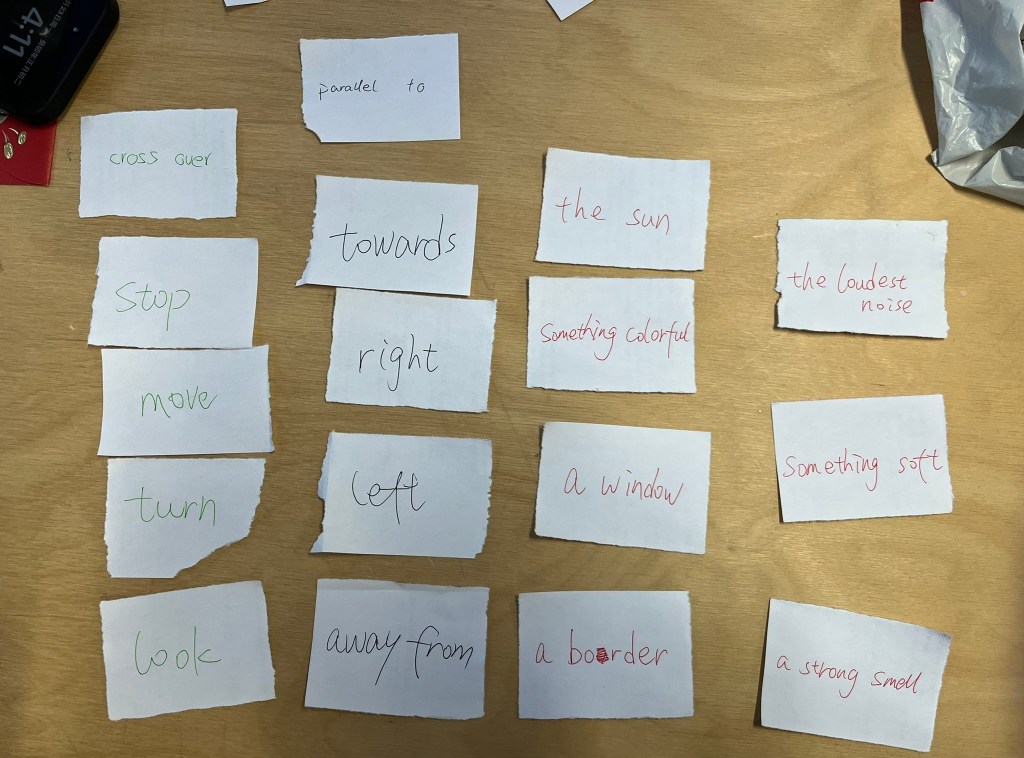 4:11
parallel to
cross over
towards
the sun
the loudest
noise
stop
right
something colorful
move
left
a window
something soft
turn
away from
a boarder
a strong smell
look